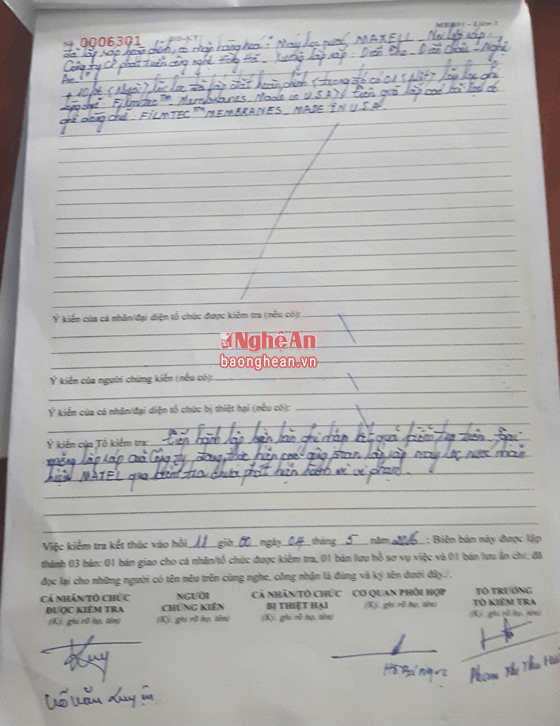 Số 0006301
đã lắp sáp hoàn chỉnh, có nhãn hàng hoá: Máy lọc nước MAXELL. Nơi lắp sáp:
Công ty CP phát triển công nghệ Hồng Hà. Xưởng lắp sáp: Diễn Thọ - Diễn Châu - Nghệ
An.
lõi lọc
FilmTec™ Membranes Made in U.S.A)
FILMTEC™ MEMBRANES. MADE IN U.S.A.
Ý kiến của cá nhân/đại diện tổ chức được kiểm tra (nếu có):
NghệAn
baonghean.vn
Ý kiến của người chứng kiến (nếu có):
Ý kiến của cá nhân/đại diện tổ chức bị thiệt hại (nếu có):
Ý kiến của Tổ kiểm tra: Tiến hành lập biên bản ghi nhận kết quả kiểm tra trên. Tại
xưởng lắp ráp của Công ty đang thực hiện các công đoạn lắp ráp máy lọc nước nhãn
hiệu MAXEL qua kiểm tra chưa phát hiện hành vi vi phạm.
Việc kiểm tra kết thúc vào hồi 11 giờ 00 ngày 04 tháng 5 năm 2016; Biên bản này được lập
thành 03 bản: 01 bản giao cho cá nhân/tổ chức được kiểm tra, 01 bản lưu hồ sơ vụ việc và 01 bản lưu ấn chỉ; đã
đọc lại cho những người có tên nêu trên cùng nghe, công nhận là đúng và ký tên dưới đây./.
CÁ NHÂN/TỔ CHỨC ĐƯỢC KIỂM TRA
(Ký, ghi rõ họ, tên)
NGƯỜI CHỨNG KIẾN
(Ký, ghi rõ họ, tên)
CÁ NHÂN/TỔ CHỨC BỊ THIỆT HẠI
(Ký, ghi rõ họ, tên)
CƠ QUAN PHỐI HỢP
(Ký, ghi rõ họ, tên)
TỔ TRƯỞNG TỔ KIỂM TRA
(Ký, ghi rõ họ, tên)
Võ Văn Luyện
Hồ Bá Ngọc
Phạm Thị Thu